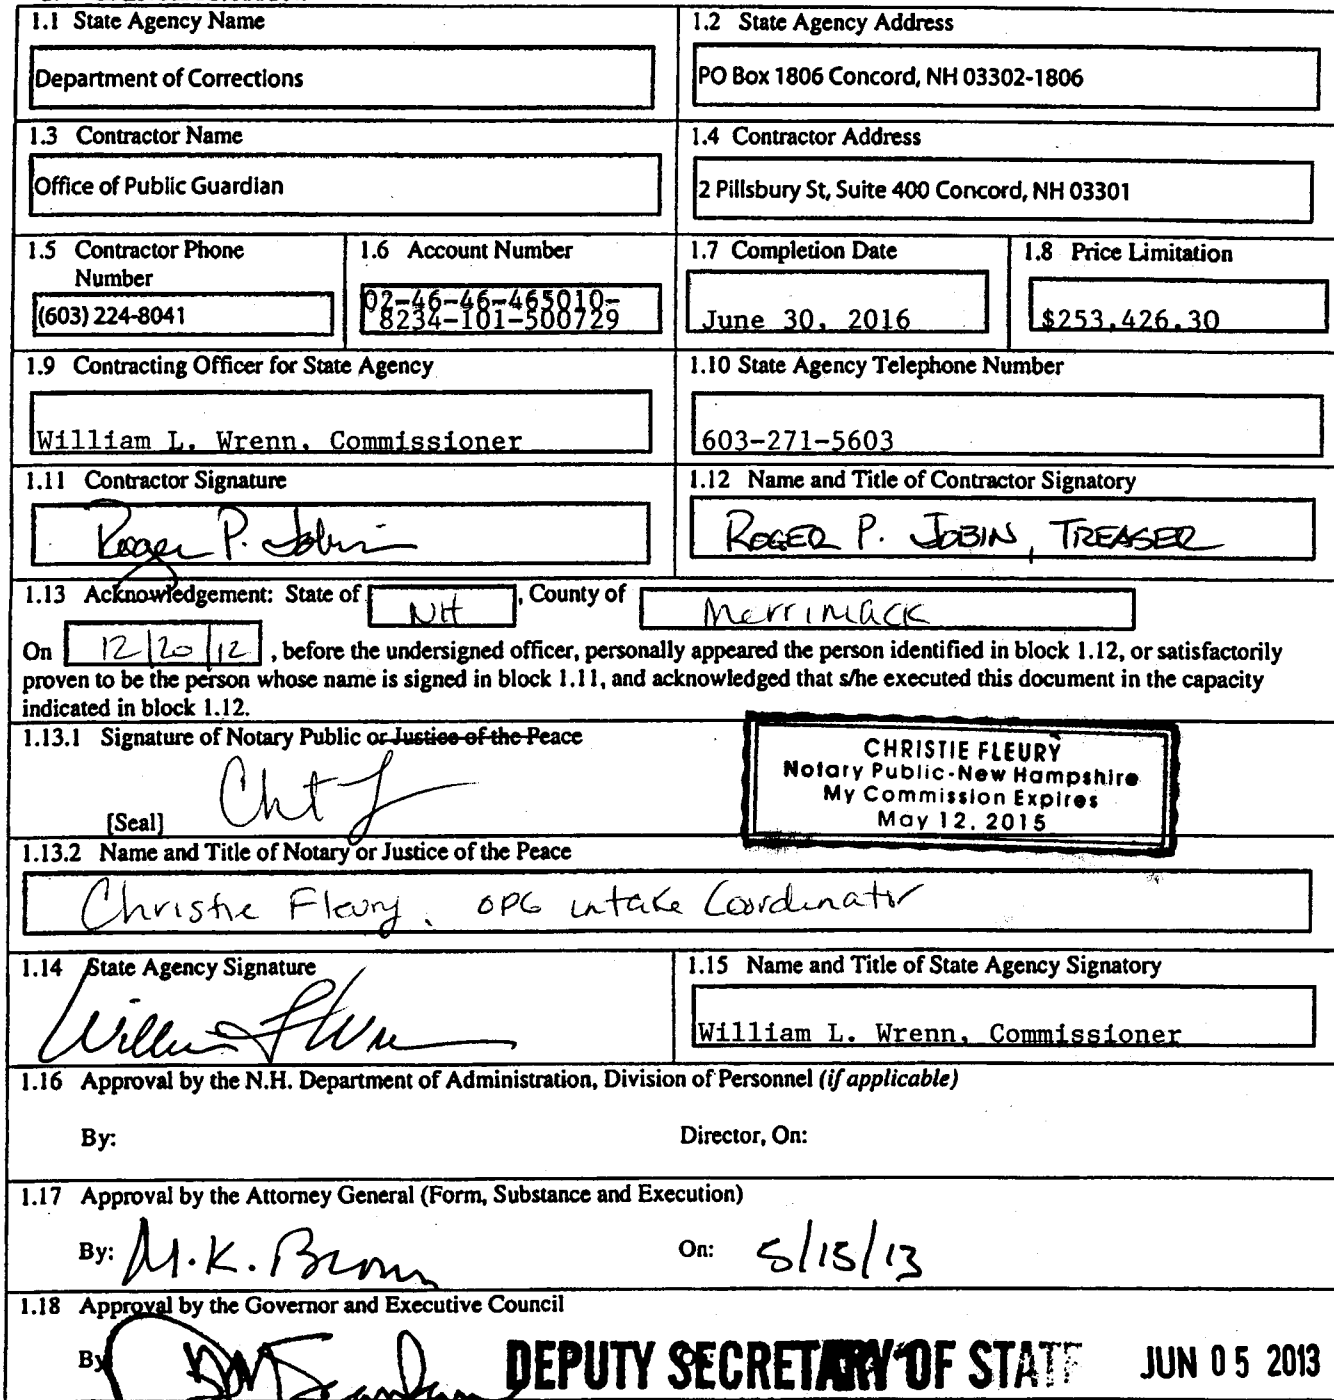 1.1 State Agency Name
1.2 State Agency Address
Department of Corrections
PO Box 1806 Concord, NH 03302-1806
1.3 Contractor Name
1.4 Contractor Address
Office of Public Guardian
2 Pillsbury St, Suite 400 Concord, NH 03301
1.5 Contractor Phone
Number
1.6 Account Number
1.7 Completion Date
1.8 Price Limitation
(603) 224-8041
02-46-46-465010-
8234-101-500729
June 30, 2016
$253,426.30
1.9 Contracting Officer for State Agency
1.10 State Agency Telephone Number
William L. Wrenn, Commissioner
603-271-5603
1.11 Contractor Signature
1.12 Name and Title of Contractor Signatory
Roger P. Jobin
ROGER P. JOBIN, TREASER
1.13 Acknowledgement: State of NH, County of Merrimack
On 12/20/12, before the undersigned officer, personally appeared the person identified in block 1.12, or satisfactorily
proven to be the person whose name is signed in block 1.11, and acknowledged that s/he executed this document in the capacity
indicated in block 1.12.
1.13.1 Signature of Notary Public or Justice of the Peace
CHRISTIE FLEURY
Notary Public-New Hampshire
My Commission Expires
May 12, 2015
[Seal]
1.13.2 Name and Title of Notary or Justice of the Peace
Christie Fleury, OPG intake Coordinator
1.14 State Agency Signature
1.15 Name and Title of State Agency Signatory
William L. Wrenn, Commissioner
1.16 Approval by the N.H. Department of Administration, Division of Personnel (if applicable)
By:
Director, On:
1.17 Approval by the Attorney General (Form, Substance and Execution)
By: M.K. Brown
On: 5/15/13
1.18 Approval by the Governor and Executive Council
By
DEPUTY SECRETARY OF STATE
JUN 05 2013